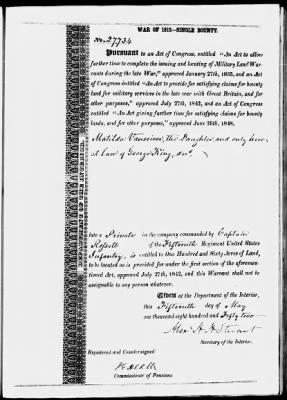 WAR OF 1812—SINGLE BOUNTY.
No. 27734
Pursuant to an Act of Congress, entitled "An Act to allow
further time to complete the issuing and locating of Military Land War-
rants during the late War," approved January 27th, 1835, and an Act of
Congress entitled "An Act to provide for satisfying claims for bounty
land for military services in the late war with Great Britain, and for
other purposes," approved July 27th, 1842, and an Act of Congress
entitled "An Act giving further time for satisfying claims for bounty
lands, and for other purposes," approved June 26th, 1848,
Matilda the Daughter and only heir
at Law of George King, decd.
late a Private in the company commanded by Captain
of the Fifteenth Regiment United States
Infantry, is entitled to One Hundred and Sixty Acres of Land,
to be located as is provided for under the first section of the aforemen-
tioned Act, approved July 27th, 1842, and this Warrant shall not be
assignable to any person whatever.
Given at the Department of the Interior,
this Fifteenth day of May
one thousand eight hundred and Fifty two
Alex. H. H. Stuart
Secretary of the Interior.
Registered and Countersigned
Heath
Commissioner of Pensions.
DEPARTMENT OF THE INTERIOR.